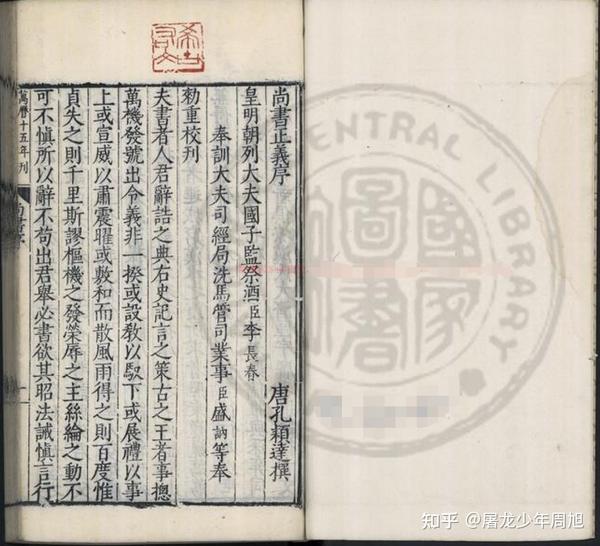 希古右文
尚書正義序 唐孔穎達撰
皇明朝列大夫國子監祭酒臣李長春
奉訓大夫司經局洗馬管司業事臣盛訥等奉
勑重校刊
夫書者人君辭誥之典右史記言之策古之王者事揔
萬機發號出令義非一揆或設教以馭下或展禮以事
上或宣威以肅震曜或敷和而散風雨得之則百度惟
貞失之則千里斯謬樞機之發榮辱之主絲綸之動不
可不慎所以辭不苟出君舉必書欲其昭法誡慎言行
萬曆十五年刊
CENTRAL LIBRARY
圖書
知乎 @屠龙少年周旭